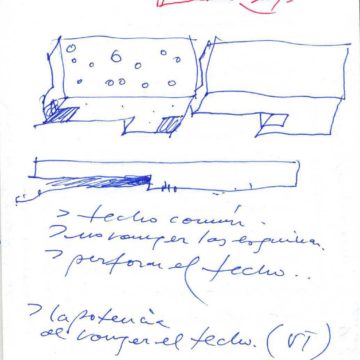 > techo común.
> no romper las esquinas.
> perforar el techo..
> la potencia
de romper el techo. (VT)